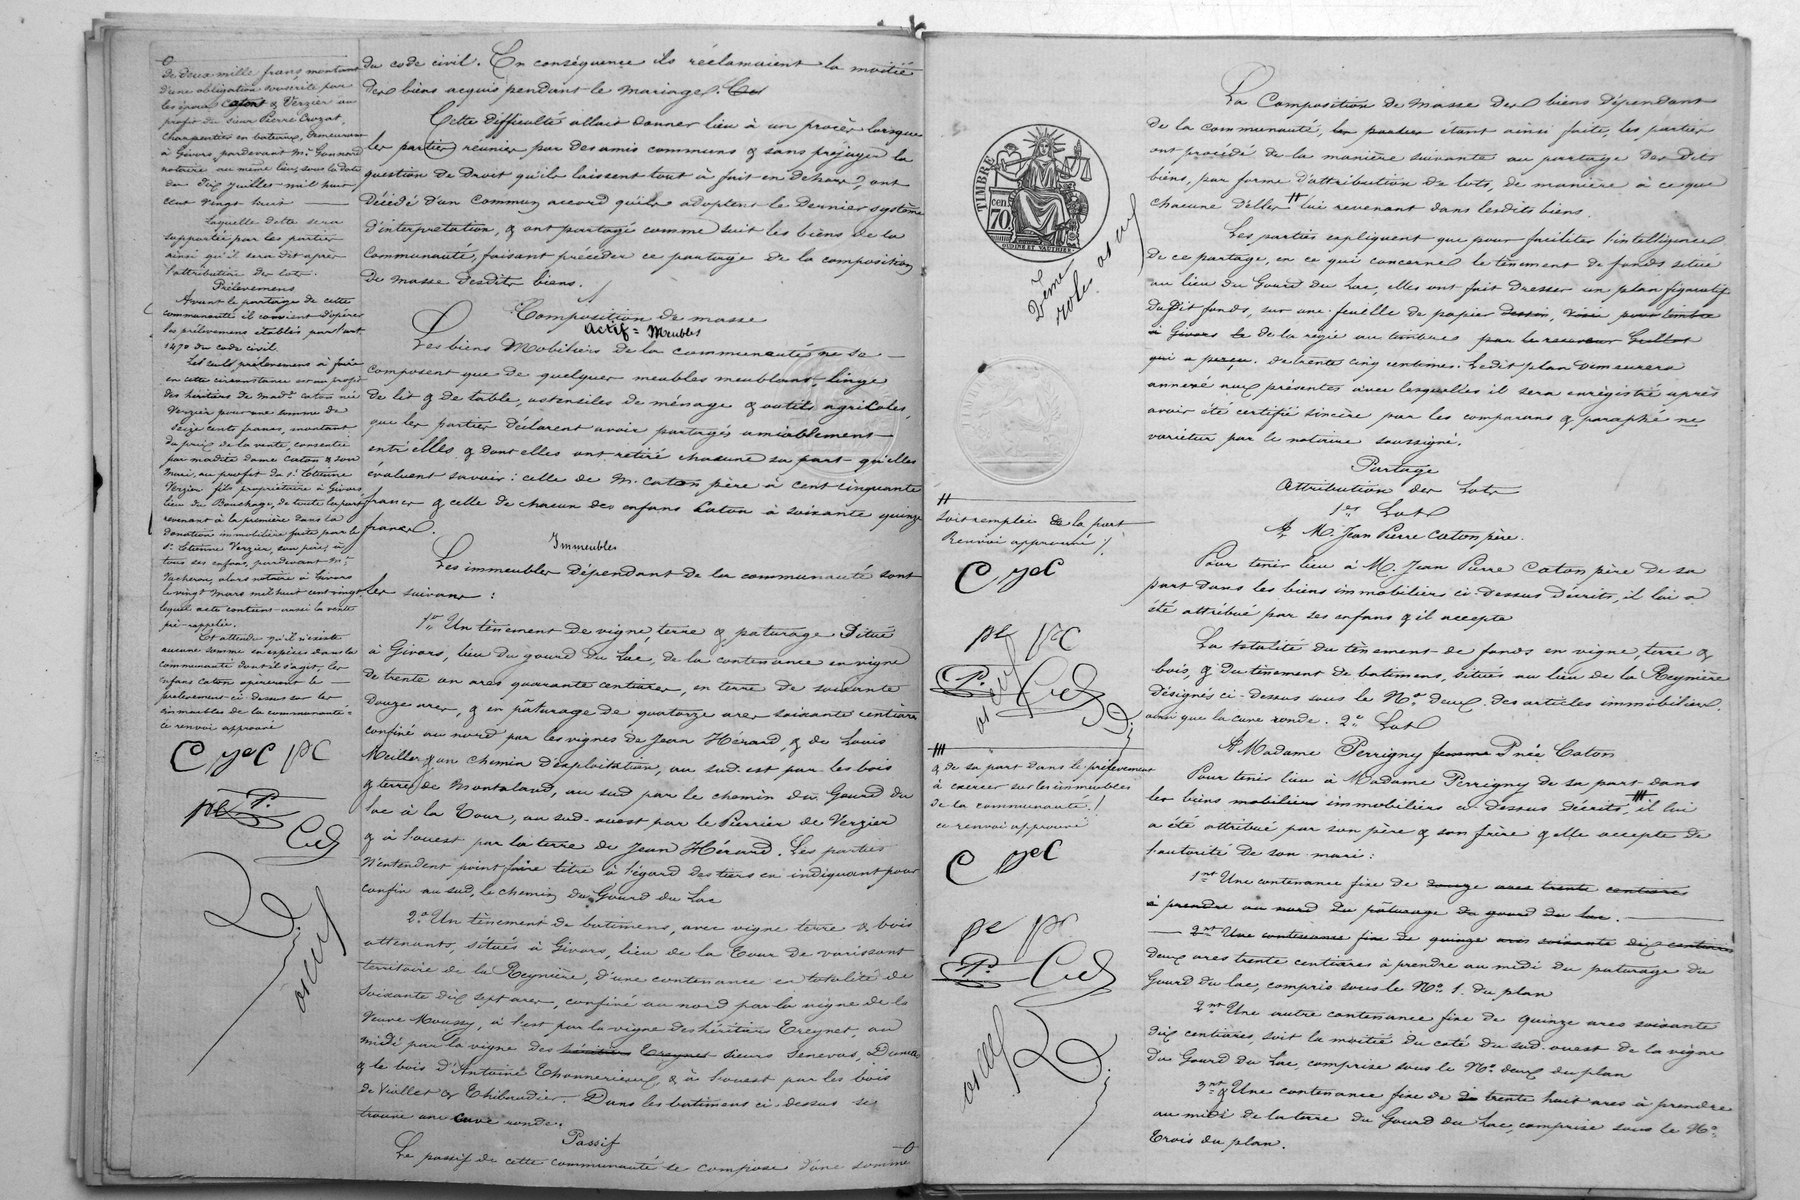 de deux mille francs montant
d'une obligation souscrite par
les époux Caton & Verzier au
profit du sieur Pierre Crozat,
charpentier en bateaux, demeurant
à Givors, pardevant Me Gonnard
notaire au même lieu, sous la date
du dix juillet mil huit
cent vingt huit
Laquelle dette sera
supportée par les parties
ainsi qu'il sera dit après
l'attribution des lots.
Prélèvemens
Avant le partage de cette
communauté il convient d'opérer
les prélèvemens établis par l'art.
1470 du code civil.
Les seuls prélèvemens à faire
en cette circonstance sont au profit
des héritiers de Made Caton née
Verzier pour une somme de
Seize cents francs, montant
du prix de la vente, consentie
par madite dame Caton & son
mari, au profit du Sr Etienne
Verzier fils propriétaire à Givors
lieu du Bouchage, de toute la part
revenant à la première dans la
donation immobilière faite par le
Sr Etienne Verzier, son père, à
tous ses enfans, pardevant Me
alors notaire à Givors
le vingt mars mil huit cent vingt
lequel acte contient aussi la vente
pré-rappelée.
Et attendu qu'il n'existe
aucune somme en espèces dans la
communauté dont il s'agit, les
enfans Caton opèreront le
prélèvement ci-dessus sur les
immeubles de la communauté.
ce renvoi approuvé
C yeC PC
pe P.
du code civil. En conséquence ils réclamaient la moitié
des biens acquis pendant le mariage. Cet
Cette difficulté allait donner lieu à un procès lorsque
les parties réunies par des amis communs & sans préjuger la
question de Droit qu'ils laissent tout à fait en dehors, ont
Décidé d'un Commun accord qu'ils adoptent le dernier système
d'interprétation, & ont partagé comme suit les biens de la
Communauté, faisant précéder ce partage de la composition
de masse desdits biens.
Composition de masse
Actif = Meubles
Les biens Mobiliers de la communauté ne se
composent que de quelques meubles meublans, linge
de lit & de table, ustensiles de ménage & outils agricoles,
que les parties déclarent avoir partagés amiablement
entr'elles & dont elles ont retiré chacune sa part qu'elles
évaluent savoir : celle de M. Caton père à cent cinquante
francs & celle de chacun des enfans Caton à soixante quinze
francs.
Immeubles
Les immeubles dépendant de la communauté sont
les suivans :
1er Un tènement de vigne, terre & pâturage Situé
à Givors, lieu du gourd du Lac, de la contenance en vigne
de trente un ares quarante centiares, en terre de soixante
douze ares, & en pâturage de quatorze ares soixante centiares
confiné au nord par les vignes de Jean Hérard, & de Louis
Meiller & un chemin d'exploitation, au sud-est par les bois
& terre de Montaland, au sud par le chemin du Gourd du
lac à la Tour, au sud-ouest par le Pierrier de Verzier
& à l'ouest par la terre de Jean Hérard. Les parties
N'entendent point faire titre à l'égard des tiers en indiquant pour
confin au sud, le chemin du Gourd du Lac
2o Un tènement de batimens, avec vigne terre & bois
attenants, situés à Givors, lieu de la Tour de varissant
territoire de la Reynière, d'une contenance en totalité de
Soixante dix sept ares, confiné au nord par la vigne de la
Veuve Moussy, à l'est par la vigne des héritiers Treynet, au
midi par la vigne des héritiers Treynet sieurs Senevas, Dumas
& le bois d'Antoine Thonnerieux, & à l'ouest par les bois
de Viollet & Thibaudier. Dans les batimens ci-dessus se
trouve une cuve ronde.
Passif
Le passif de cette communauté se compose d'une somme
TIMBRE
70 cen
2eme
role
Soit remplie de la part
Renvoi approuvé
C yeC
pe PC
P.
& de sa part dans le prélèvement
à exercer sur les immeubles
de la communauté
ce renvoi approuvé
C yeC
pe PC
P.
La Composition de masse des biens dépendant
de la communauté, les parties étant ainsi faite, les parties
ont procédé de la manière suivante au partage des dits
biens, par forme d'attribution de lots, de manière à ce que
chacune d'elles lui revenant dans lesdits biens.
Les parties expliquent que pour faciliter l'intelligence
de ce partage, en ce qui concerne le tènement de fonds situé
au lieu du Gourd du Lac, elles ont fait dresser un plan figuratif
dudit fonds, sur une feuille de papier dessin, visée pour timbre
à Givors le de la régie au timbres par le receveur Guillot
qui a perçu. de trente cinq centimes. Ledit plan demeurera
annexé aux présentes avec lesquelles il sera enregistré après
avoir été certifié sincère par les comparans & paraphé ne
varietur par le notaire soussigné.
Partage
Attribution des Lots
1er Lot
A M. Jean Pierre Caton père.
Pour tenir lieu à M. Jean Pierre Caton père de sa
part dans les biens immobiliers ci-dessus décrits, il lui a
été attribué par ses enfans & il accepte
La totalité du tènement de fonds en vigne, terre &
bois, & du tènement de batimens, situés au lieu de la Reynière
désignés ci-dessus sous le No deux des articles immobiliers.
ainsi que la cuve ronde. 2e Lot
A Madame Perrigny femme P née Caton
Pour tenir lieu à Madame Perrigny de sa part dans
les biens mobiliers immobiliers ci-dessus décrits, il lui
a été attribué par son père & son frère & elle accepte de
l'autorité de son mari :
1nt Une contenance fixe de douze ares trente centiares
à prendre au nord du pâturage du gourd du lac.
2nt Une contenance fixe de quinze ares soixante dix centiares
deux ares trente centiares à prendre au midi du paturage du
Gourd du lac, compris sous le No 1. du plan
2nt Une autre contenance fixe de quinze ares soixante
dix centiares, soit la moitié du coté du sud-ouest de la vigne
du Gourd du Lac, comprise sous le No deux du plan
3nt & Une contenance fixe de trente huit ares à prendre
au midi de la terre du Gourd du Lac, comprise sous le No
trois du plan.